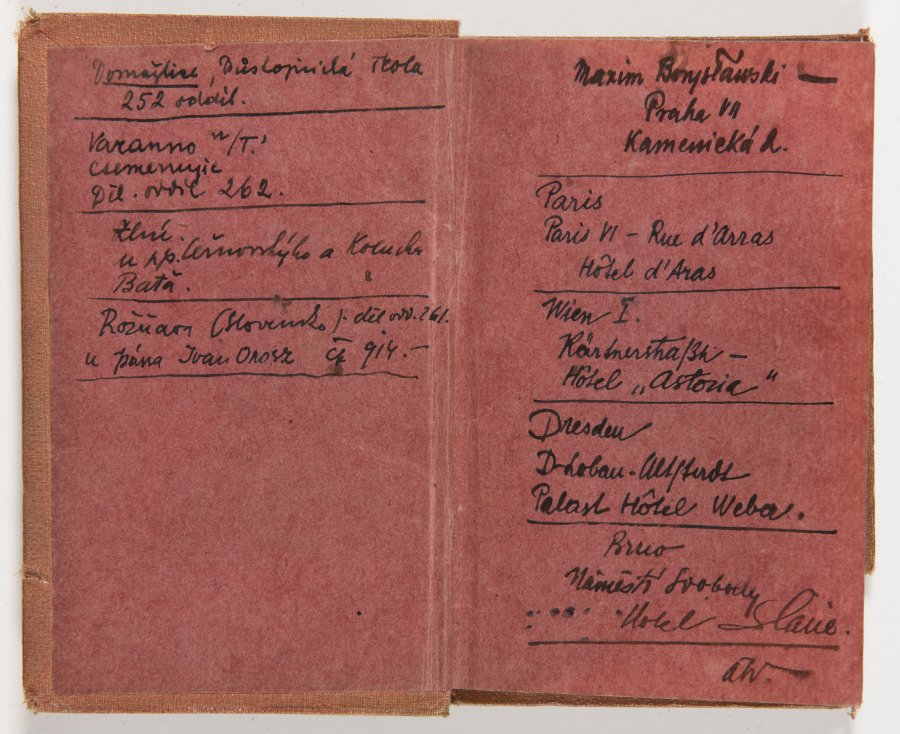 Domažlice, Důstojnická škola
252 oddíl.
Varanno n/T.
Děl. oddíl 262.
Zlín.
u p. a
Baťa. "
Rožňava (Slovensko) děl. odd. 261.
u pána Ivan Orosz čp 914.–
Maxim Borysławski –
Praha VII
Kamenická 2.
Paris
Paris VI – Rue d'Arras
Hôtel d'Aras
Wien I.
Kärtnerstraße –
Hôtel „Astoria“
Dresden
D-Lobau-Altstadt
Palast Hôtel Weber.
Brno
Náměstí Svobody
Hotel Slavie.